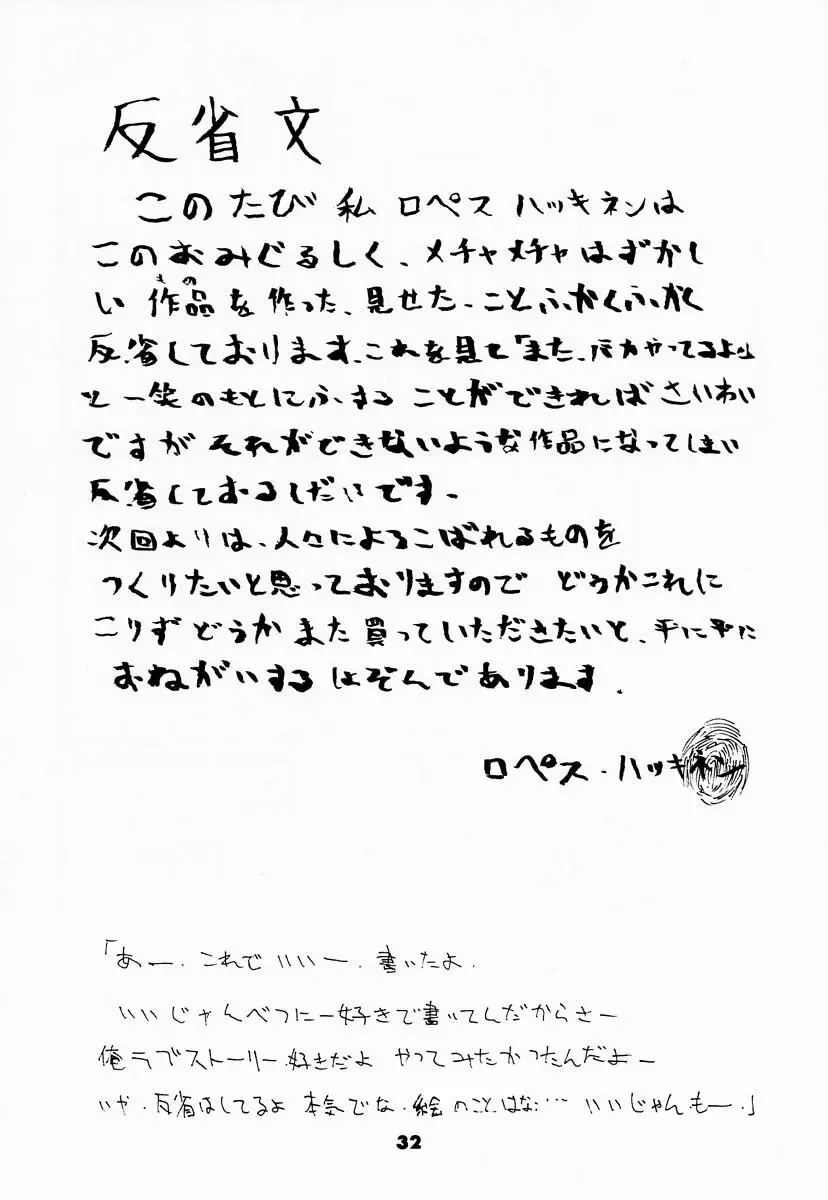 反省文
このたび 私 ロペス ハッキネンは
このおみぐるしく、メチャメチャはずかし
もの
い 作品を作った、見せた、ことふかくふかく
反省しております。これを見て「また、バカやってるよ」
と一笑のもとにふする ことができればさいわい
ですが それができないような作品になってしまい
反省しておるしだいです。
次回よりは、人々によろこばれるものを
つくりたいと思っておりますので どうかこれに
こりず どうか また 買っていただきたいと、平に平に
おねがいする しょぞんであります。
ロペス・ハッキネン
「あー、これでいいー、書いたよ、
いいじゃんべつにー好きで書いてんだからさー
俺ラブストーリー好きだよ やってみたかったんだよー
いや、反省はしてるよ 本気でな、絵のことはな…… いいじゃんもー。」
32